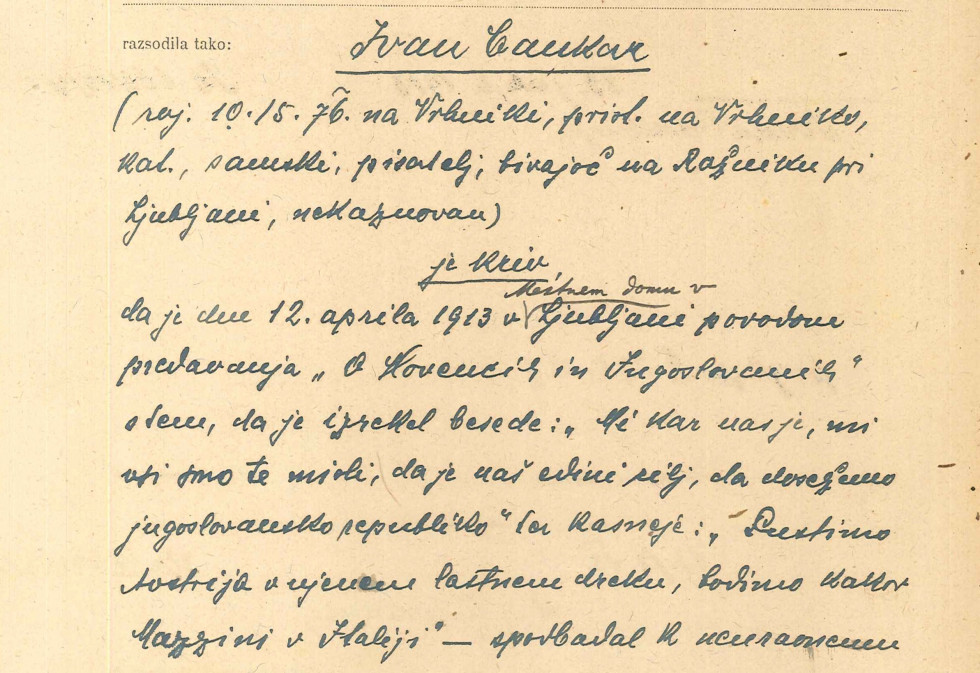 razsodila tako: Ivan Cankar
(roj. 10./5. 76. na Vrhniki, prist. na Vrhniko,
kat., samski, pisatelj, bivajoč na Rožniku pri
Ljubljani, nekaznovan)
je kriv,
Mestnem domu v
da je dne 12. aprila 1913 v Ljubljani povodom
predavanja „O Slovencih in Jugoslovanih“
s tem, da je izrekel besede: „Mi kar nas je, mi
vsi smo te misli, da je naš edini cilj, da dosežemo
jugoslovansko republiko“ ter kasneje: „Pustimo
Avstrijo v njenem lastnem dreku, bodimo kakor
Mazzini v Italiji“ — spodbadal k